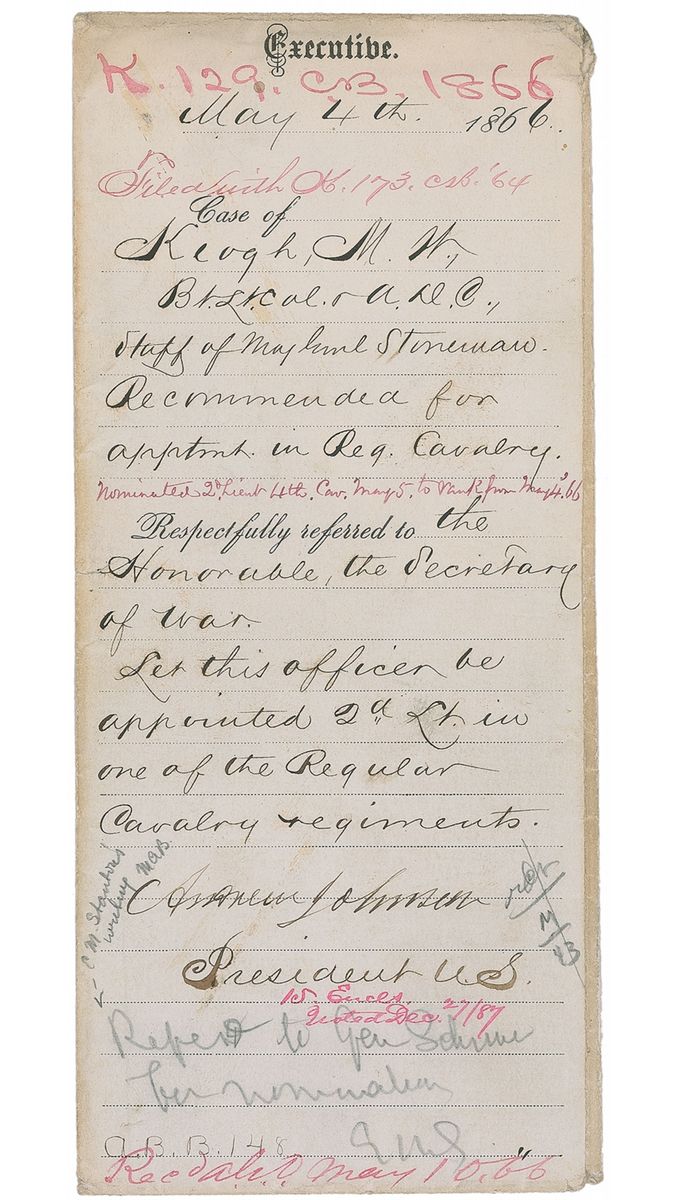 Executive.
K. 129. C.B. 1866
May 4th. 1866.
Filed with K. 173. C.B. '64
Case of
Keogh, M. W.,
Bt. Lt. Col. & A. D. C.,
Staff of Maj Genl Stoneman.
Recommended for
apptmt. in Reg. Cavalry.
Nominated 2d. Lieut 4th. Cav. May 5. to rank from May 4. 66
Respectfully referred to the
Honorable, the Secretary
of War.
Let this officer be
appointed 2d Lt. in
one of the Regular
Cavalry regiments.
← E M Stanton's
writing MAB.
Andrew Johnson
President U.S.
15 Encls.
Noted Dec. 27/87
Refered to Gen Schriver
for nomination
EMS
A.B.B. 148
Rec'd A.G.O. May 10. 66